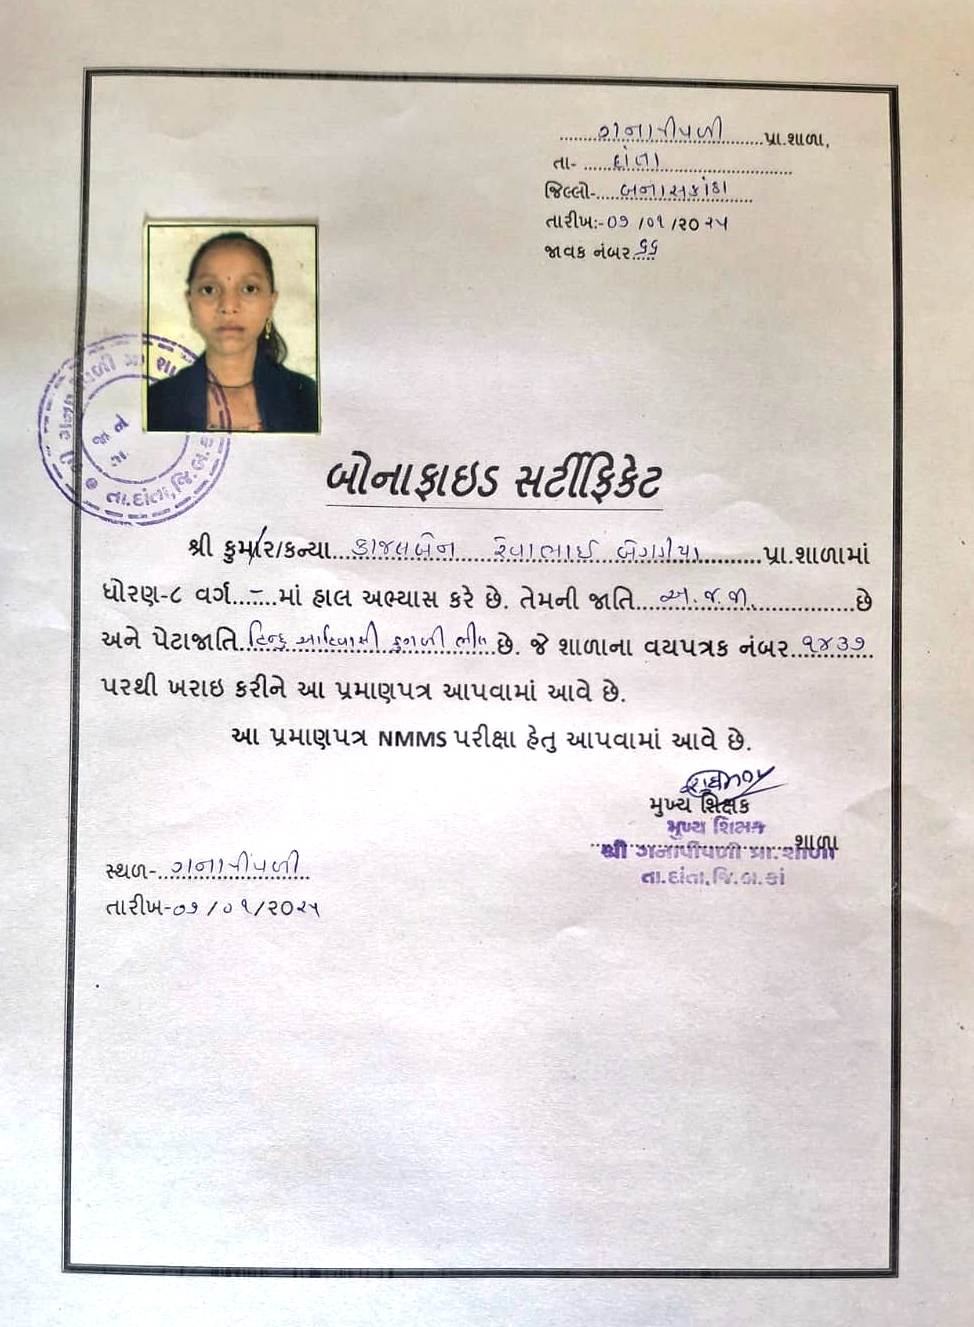 ગનાપીપળી પ્રા.શાળા,
તા- દાંતા
જિલ્લો- બનાસકાંઠા
તારીખ:- ૦૭ /૦૧ /૨૦ ૨૫
જાવક નંબર ૬૬
તા.દાંતા,જિ.બ.કાં
બોનાફાઇડ સર્ટીફિકેટ
શ્રી કુમાર/કન્યા કાજલબેન રેવાભાઈ પ્રા.શાળામાં
ધોરણ-૮ વર્ગ - માં હાલ અભ્યાસ કરે છે. તેમની જાતિ અ.જ.જા. છે
અને પેટાજાતિ હિન્દુ આદિવાસી ડુંગળી ભીલ છે. જે શાળાના વયપત્રક નંબર ૧૪૩૭
પરથી ખરાઇ કરીને આ પ્રમાણપત્ર આપવામાં આવે છે.
આ પ્રમાણપત્ર NMMS પરીક્ષા હેતુ આપવામાં આવે છે.
મુખ્ય શિક્ષક
મુખ્ય શિક્ષક
શાળા
શ્રી ગનાપીપળી પ્રા.શાળા
તા.દાંતા,જિ.બ.કાં
સ્થળ- ગનાપીપળી
તારીખ-૦૭ /૦૧/૨૦૨૫